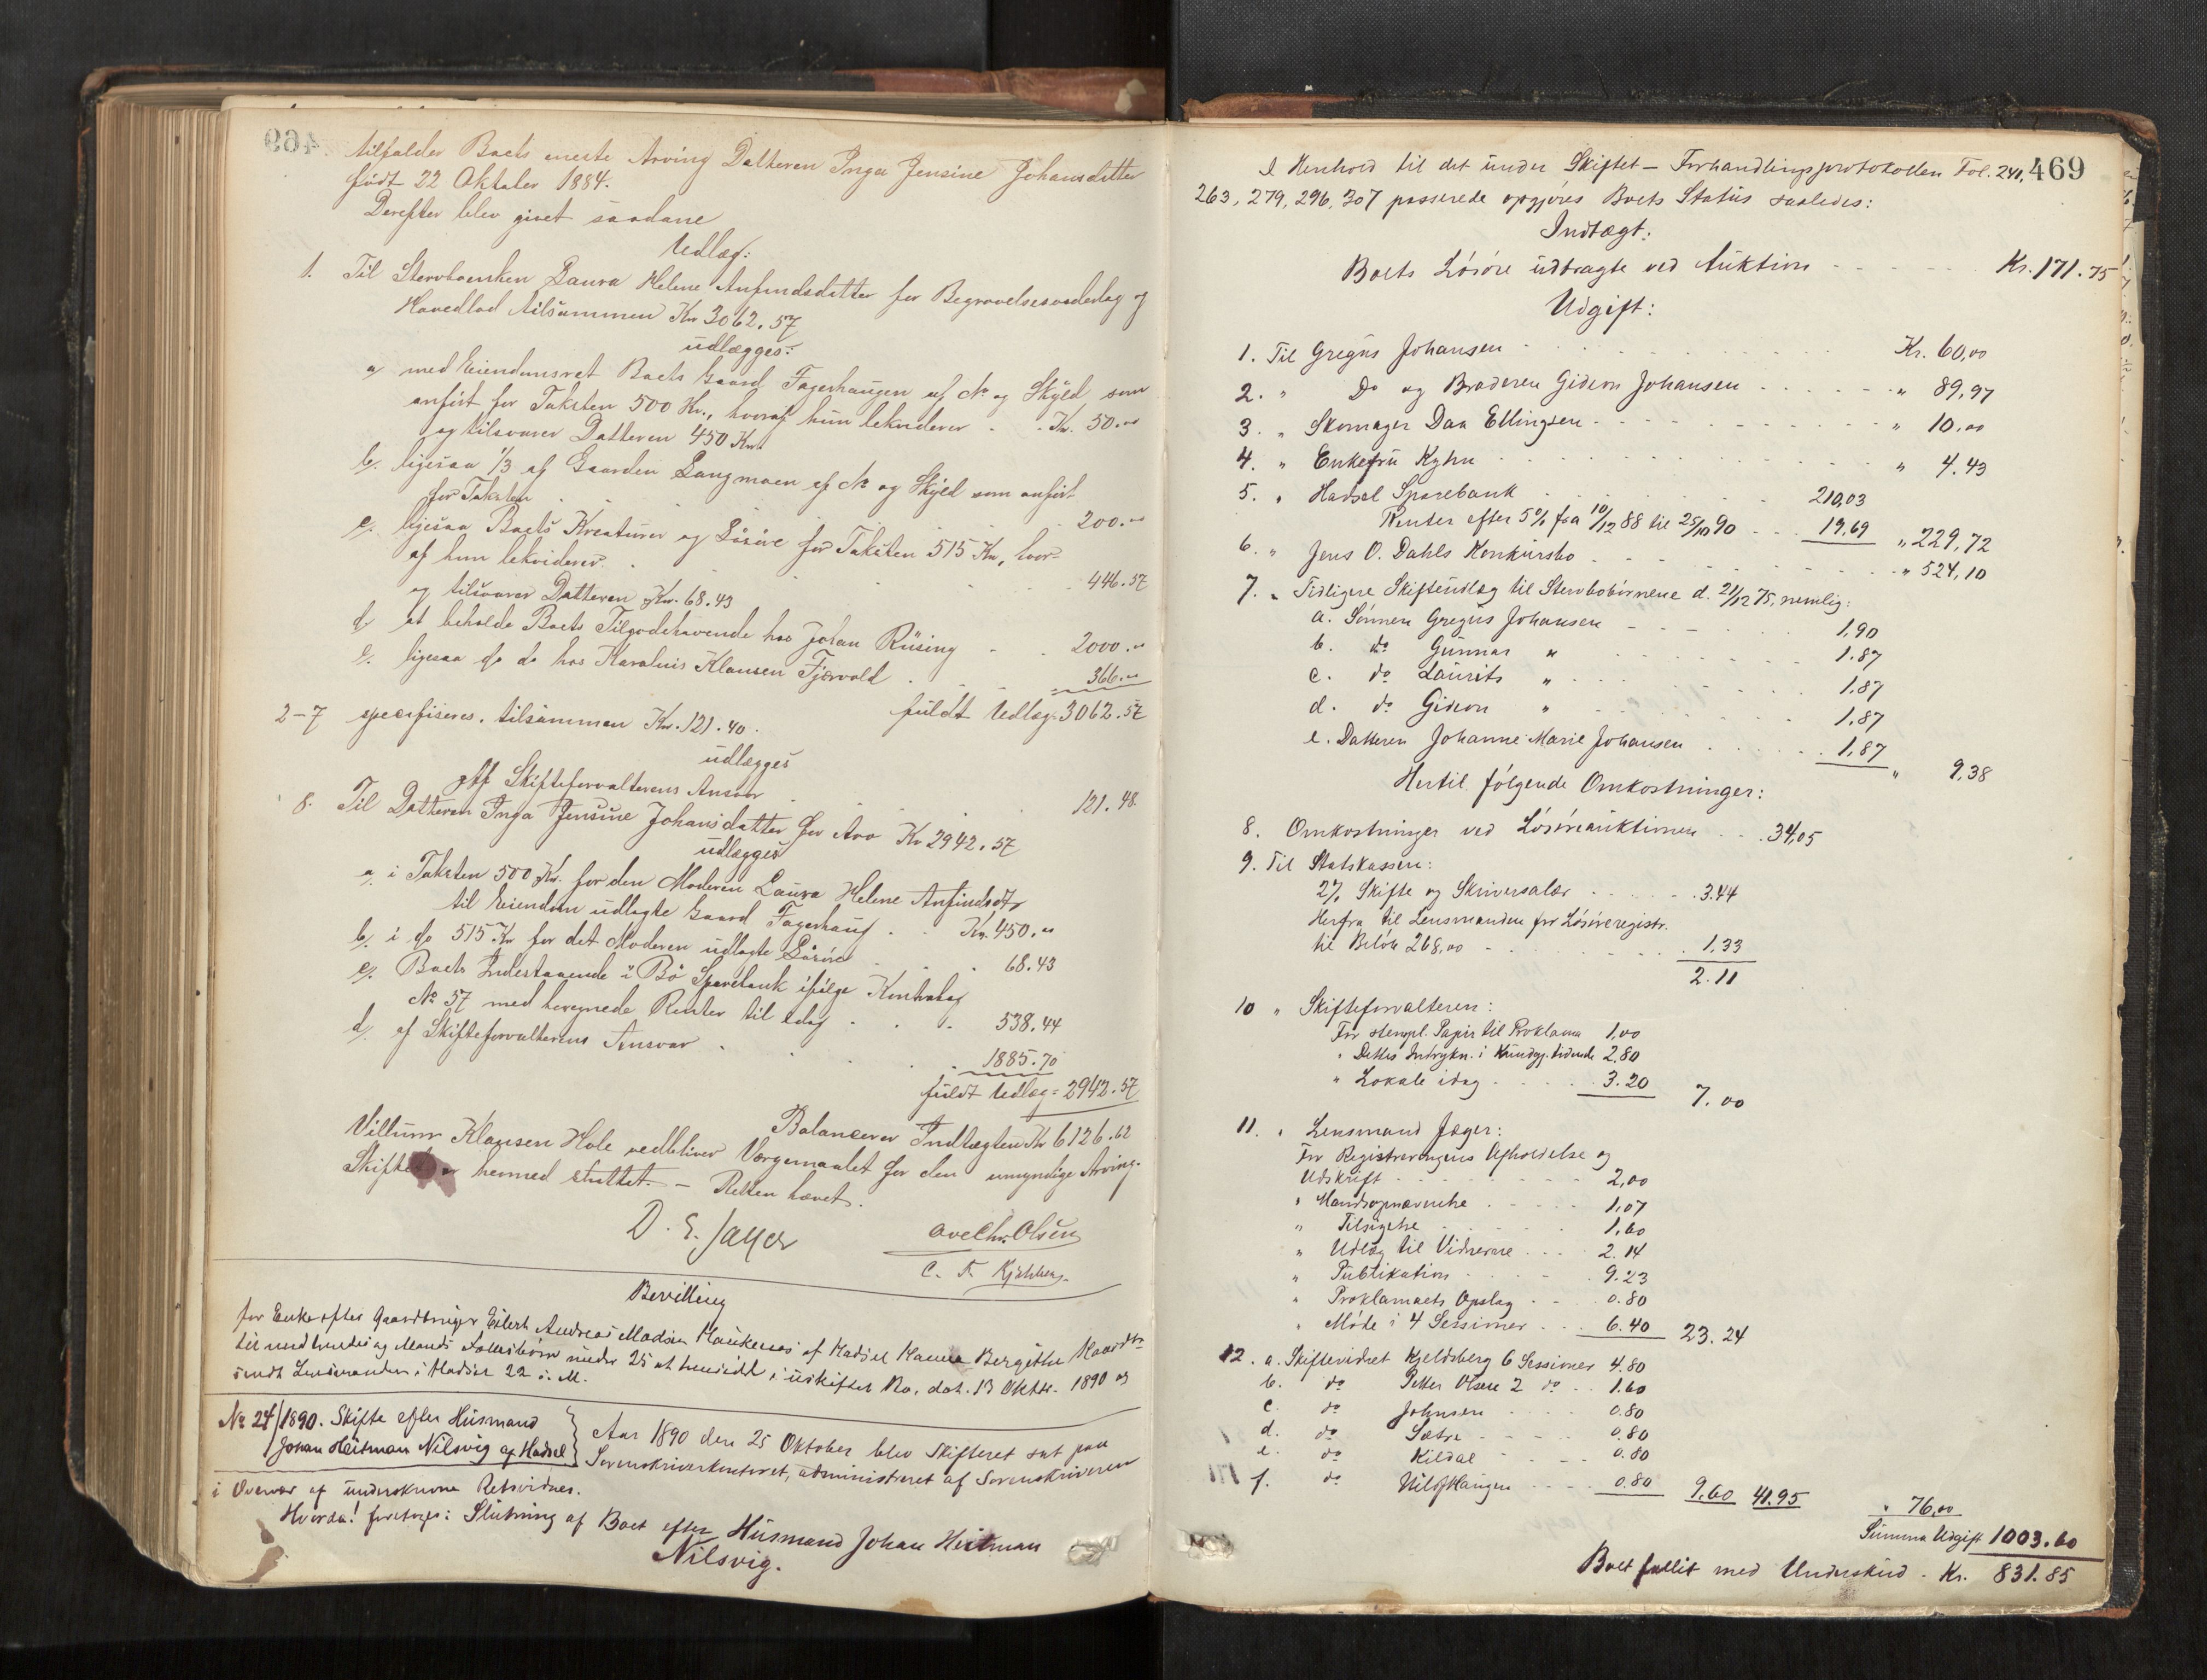 tilfalder Boets eneste Arving Datteren Inga Jensine Johansdatter
født 22 Oktober 1884.
Derefter blev givet saadane
Udlæg:
1. Til Stervboenken Laura Helene Anfindsdatter for Begravelsesvederlag og
Hovedlod tilsammen Kr 3062.57
udlægges:
a, med Eiendomsret Boets Gaard Fagerhaugen af No og Skyld som
anført for Taksten 500 Kr., hvoraf hun lekviderer - - Kr. 50.00
og tilsvarer Datteren 450 Kr.
b, ligesaa 1/3 af Gaarden Langmoen af No og Skyld som anført
for Taksten . . . 200.00
c, ligesaa Boets Kreaturer og Løsøre for Taksten 515 Kr, hvor-
af hun lekviderer . . . 446.57
og tilsvarer Datteren Kr. 68.43
d, at beholde Boets Tilgodehavende hos Johan Rüsing - - 2000.00
e, ligesaa do do hos Karolius Klausen Fjærvold . . 366.00
fuldt Udlæg = 3062.57
2-7 specifiseres. tilsammen Kr. 121.40.
udlægges
Af Skifteforvalterens Ansvar . . . 121.48.
8. Til Datteren Inga Jensine Johansdatter for Arv Kr 2942.57
udlægges
a, i Taksten 500 Kr. for den Moderen Laura Helene Anfindsdtr
til Eiendom udlagte Gaard Fagerhaug . . Kr. 450.00
b, i do 515 Kr for det Moderen udlagte Løsøre . . . 68.43
c, Boets Indestaaende i Bø Sparebank ifølge Kontrabog
No 57 med beregnede Renter til idag . . . 538.44
d, af Skifteforvalterens Ansvar . . . 1885.70
fuldt Udlæg = 2942.57
Balancerer Indtægten Kr 6126.62
Villum Klausen Hole vedbliver Værgemaalet for den umyndige Arving.
Skiftet er hermed sluttet. - Retten hævet.
D. E. Jayer
Ove Chr. Olsen
C. F. Kjeldberg.
Bevilling
for Enke efter Gaardbruger Eilert Andreas Madsen Haukenes af Hadsel Hanna Bergithe
til med hendes og Mands Fællesbørn under 25 at hensidde i uskiftet Bo, dat. 13 Oktbr. 1890 og
sendt Lensmanden i Hadsel 22 s. M.
No 24/1890. Skifte efter Husmand
Johan Heitman Nilsvig af Hadsel
Aar 1890 den 25 Oktober blev Skifteret sat paa
Sorenskriverkontoret, administreret af Sorenskriveren
i Overvær af underskrevne Retsvidner.
Hvorda! foretoges: Slutning af Boet efter Husmand Johan Heitman
Nilsvig.
469
I Henhold til det under Skiftet - Forhandlingsprotokollen Fol. 240,
263, 279, 296, 307 passerede opgjøres Boets Status saaledes:
Indtægt:
Boets Løsøre udbragte ved Auktion - - - Kr. 171.75
Udgift:
1. Til Gregus Johansen . . . Kr. 60,00
2. " Do og Broderen Gideon Johansen . . . " 89,97
3. " Skomager Daa Ellingsen . . . " 10.00
4. " Enkefru Kyhn . . . " 4.43
5. " Hadsel Sparebank . . . 210,03
Renter efter 5% fra 10/12 88 til 25/10 90 . . . 19.69 " 229,72
6. " Jens O. Dahls Konkursbo . . . " 524,10
7. " Tidligere Skifteudlæg til Stervbobørnene d. 21/12 75, nemlig:
a. Sønnen Gregus Johansen - - - 1,90
b. do Gunnar " . . . 1.87
c. do Laurits " . . . 1,87
d. do Gideon " . . . 1,87
e. Datteren Johanne Marie Johansen . . . 1,87 " 9,38
Hertil følgende Omkostninger:
8. Omkostninger ved Løsøreauktionen . . . 34,05
9. Til Statskassen:
2% Skifte og Skriversalær . . . 3.44
Herfra til Lensmanden for Løsøreregistr.
til Beløb 268,00 - . . . 1.33
2.11
10 " Skifteforvalteren:
For stempl. Papir til Proklama 1,00
" Dettes Indrykn. i Kundgj. tidende 2,80
" Lokale idag . . . 3.20 7.00
11. " Lensmand Jæger:
For Registreringens Afholdelse og
Udskrift - - - 2,00
" Mandsopnævnelse . . . 1,07
" Tilsigelse . . . 1,60
" Udlæg til Vidnerne . . . 2.14
" Publikation . . . 9.23
" Proklamaets Opslag . . . 0.80
" Møde i 4 Sessioner . . . 6.40 23.24
12. a. Skiftevidnet Kjeldsberg 6 Sessioner 4.80
b. do Petter Olsen 2 do . . 1.60
c. do Johnsen . . . 0.80
d. do Sætre . . . 0.80
e. do Kildal - - - 0.80
f. do Haugen . . . 0.80 9,60 41.95 " 76,00
Summa Udgift 1003.60
Boet fallit med Underskud - Kr. 831.85